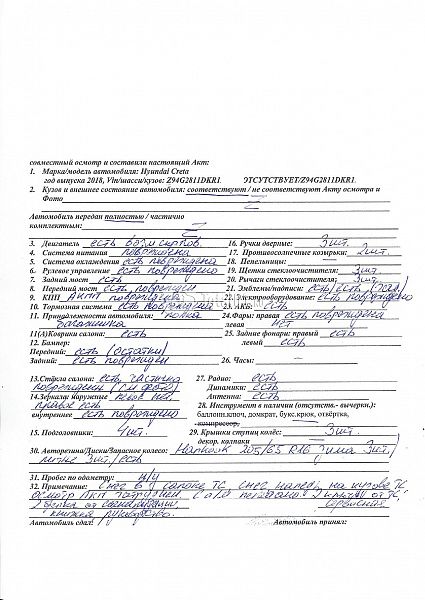 совместный осмотр и составили настоящий Акт:
1. Марка/модель автомобиля: Hyundai Creta
год выпуска 2018, Vin/шасси/кузов: Z94G2811DKR1 ЭТСУТСТВУЕТ/Z94G2811DKR1
2. Кузов и внешнее состояние автомобиля: соответствуют / не соответствуют Акту осмотра и
Фото
Автомобиль передан полностью / частично
комплектным:
3. Двигатель есть 16. Ручки дверные: 3 шт.
4. Система питания повреждена 17. Противосолнечные козырьки: 2 шт.
5. Система охлаждения есть повреждена 18. Пепельницы:
6. Рулевое управление есть повреждено 19. Щетки стеклоочистителя: 3 шт.
7. Задний мост есть 20. Рычаги стеклоочистителя: 3 шт.
8. Передний мост есть поврежден 21. Эмблемы/надписи: есть/есть (зад.)
9. КПП АКПП повреждена 22. Электрооборудование: есть повреждено
10. Тормозная система есть повреждена 23. АКБ: есть
11. Принадлежности автомобиля: полка багажника 24. Фары: правая есть повреждена
левая нет
11(А) Коврики салона: есть 25. Задние фонари: правый есть
левый есть
12. Бампер:
Передний: есть (остатки)
Задний: есть поврежден 26. Часы:
13. Стёкла салона: есть частично повреждены 27. Радио: есть
Динамики: есть
Антенна: есть
14. Зеркала наружные левое нет, правое есть
внутреннее есть повреждено
28. Инструмент в наличии (отсутств.- вычеркн.):
баллонн.ключ, домкрат, букс.крюк, отвёртка,
компрессор,
15. Подголовники: 4 шт. 29. Крышки ступиц колёс: 3 шт.
декор. колпаки
30. Авторезина/Диски/Запасное колесо: Hankook 205/65 R16 Зима 3 шт./
литые 3 шт./есть
31. Пробег по одометру: н/у
32. Примечание: Снег в салоне ТС, снег на кузове ТС
осмотр ЛКП затруднен. передано 2 ключа от ТС,
сервисная
книжка
Автомобиль сдал: Автомобиль принял: